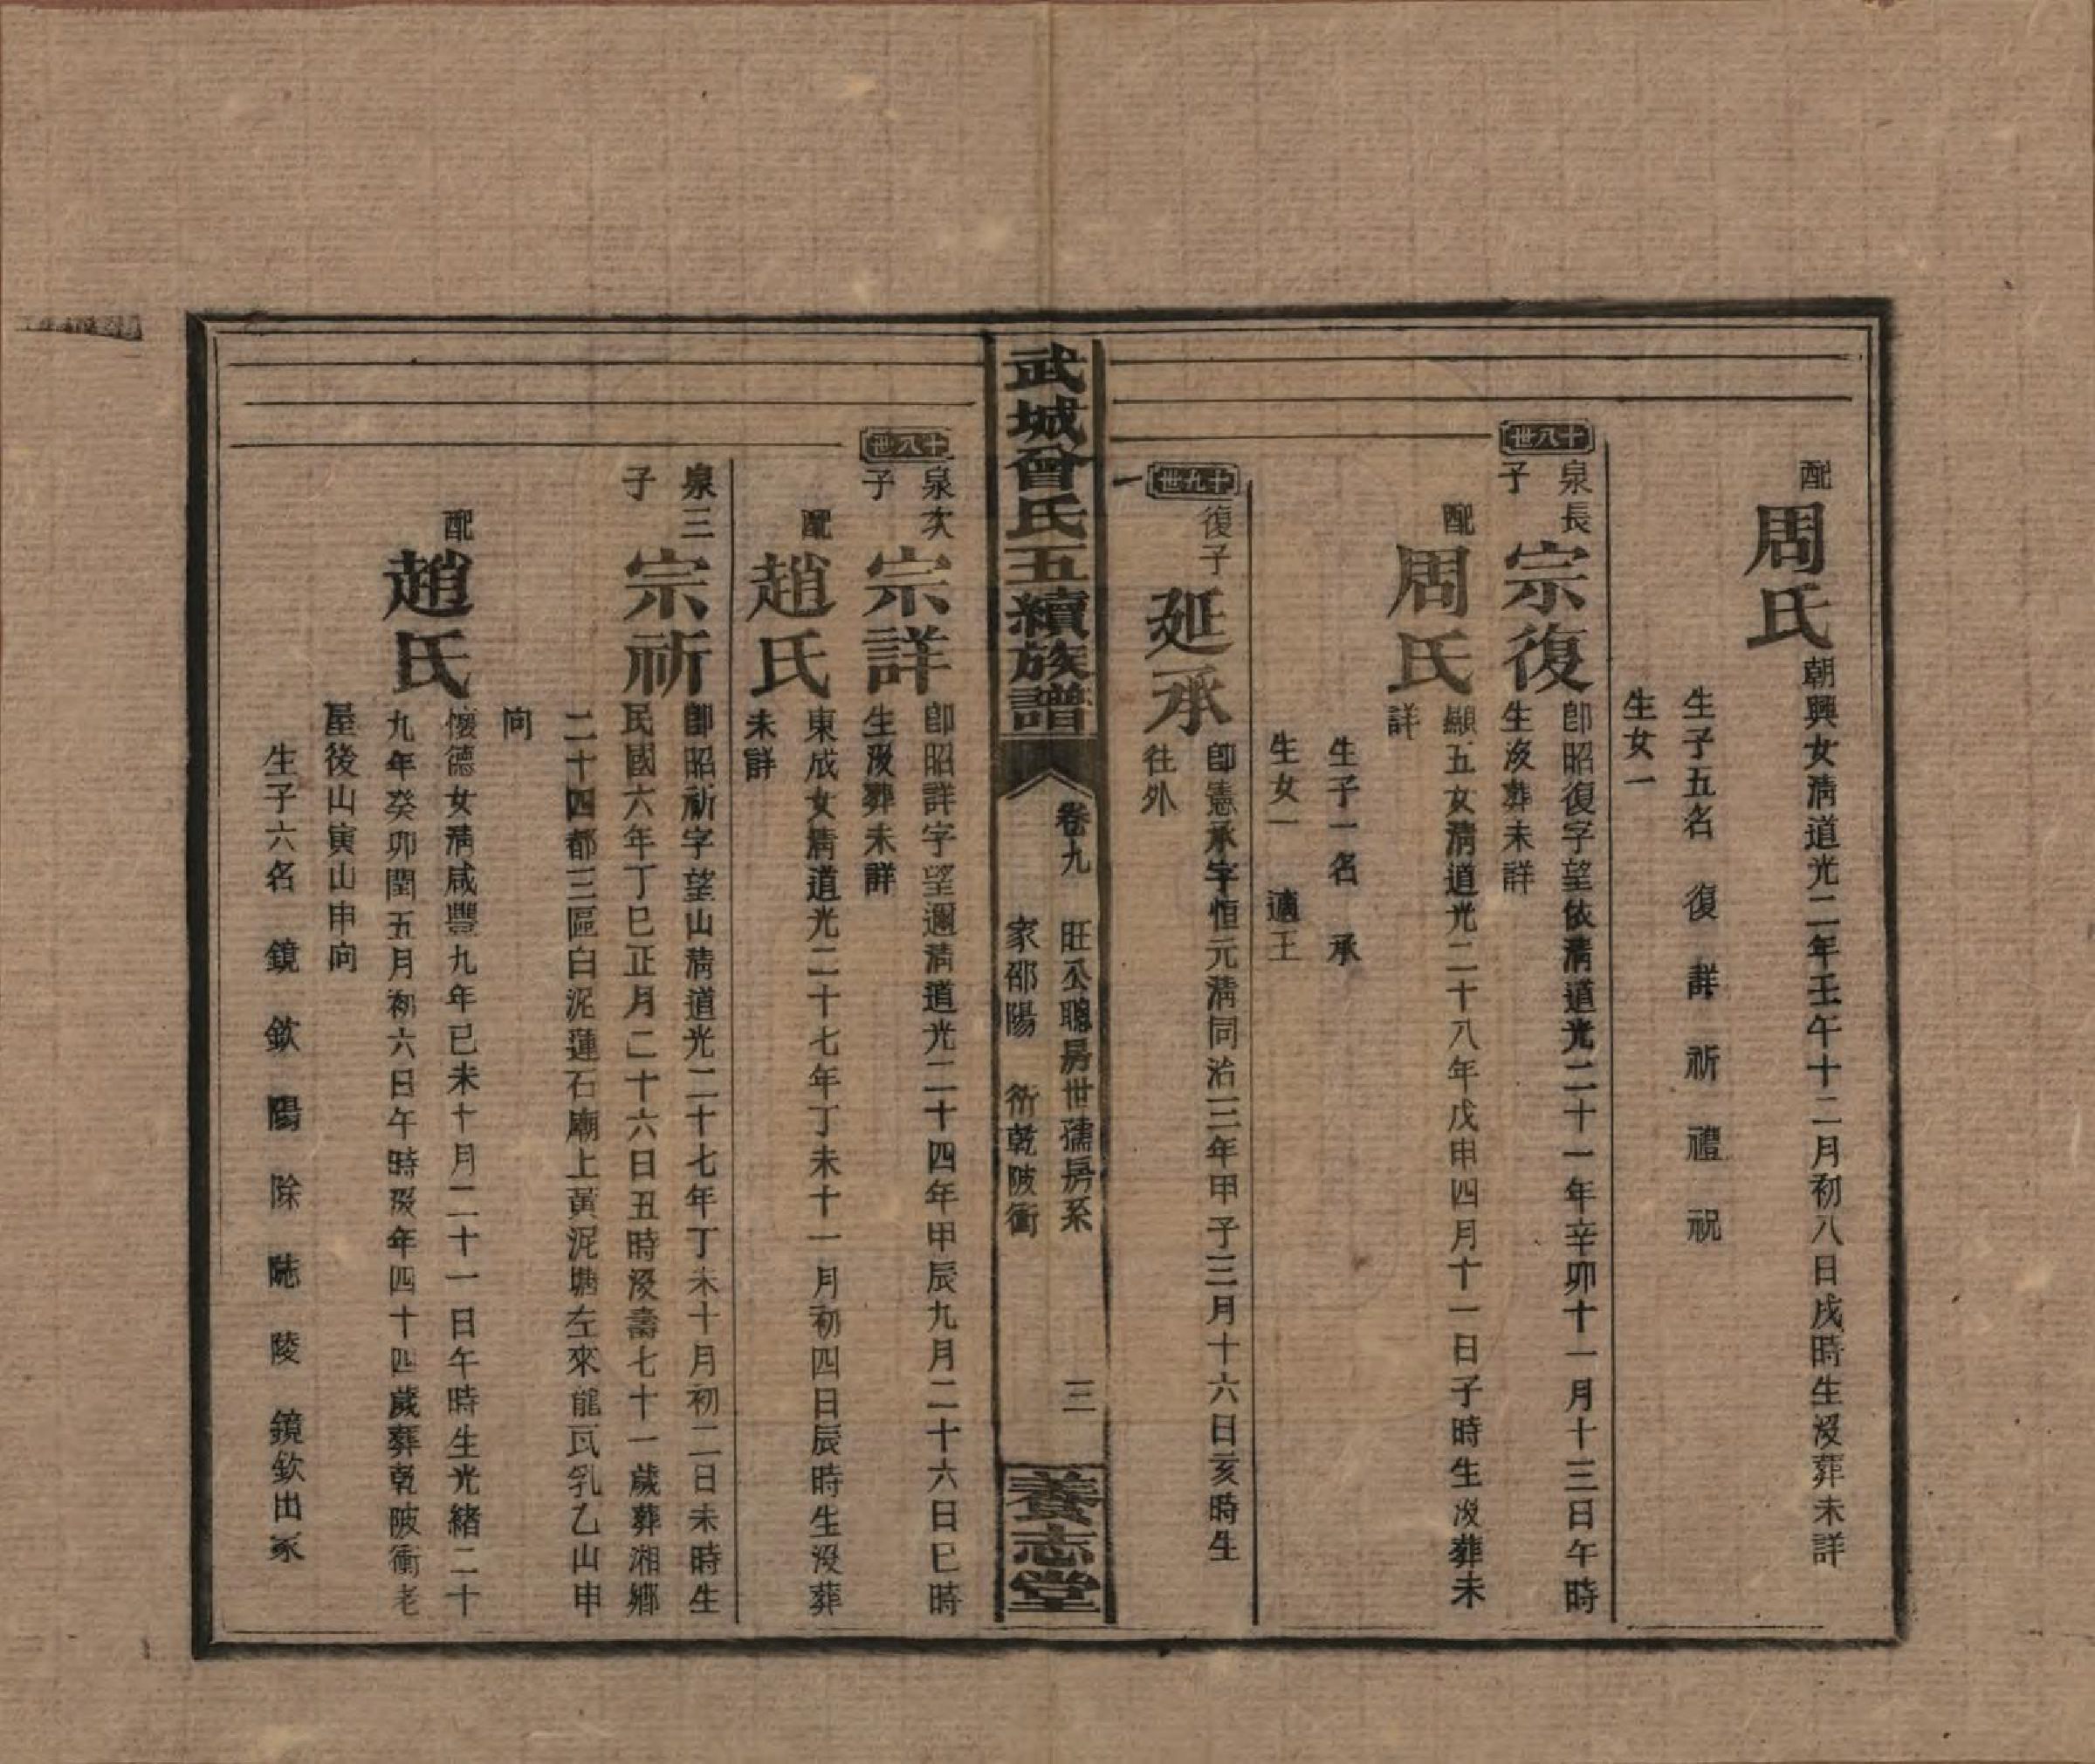 配
周氏
朝興女淸道光二年壬午十二月初八日戌時生沒葬未詳
生子五名　復　詳　祈　禮　祝
生女一
十八世
泉長子
宗復
卽昭復字望依淸道光二十一年辛卯十一月十三日午時
生沒葬未詳
配
周氏
顯五女淸道光二十八年戊申四月十一日子時生沒葬未
詳
生子一名　承
生女一　適王
十九世
復子
延承
卽憲承字恒元淸同治三年甲子三月十六日亥時生
往外
武城曾氏五續族譜
卷九
旺公聰房世孺房系
家邵陽　衖乾陂衝
三
養志堂
十八世
泉次子
宗詳
卽昭詳字望邇淸道光二十四年甲辰九月二十六日巳時
生沒葬未詳
配
趙氏
東成女淸道光二十七年丁未十一月初四日辰時生沒葬
未詳
泉三子
宗祈
卽昭祈字望山淸道光二十七年丁未十月初二日未時生
民國六年丁巳正月二十六日丑時沒壽七十一歲葬湘鄉
二十四都三區白泥蓮石廟上黃泥塘左來龍瓦乳乙山申
向
配
趙氏
懷德女淸咸豐九年已未十月二十一日午時生光緒二十
九年癸卯閏五月初六日午時沒年四十四歲葬乾陂衝老
屋後山寅山申向
生子六名　鏡　欽　陽　除　陲　陵　鏡欽出家